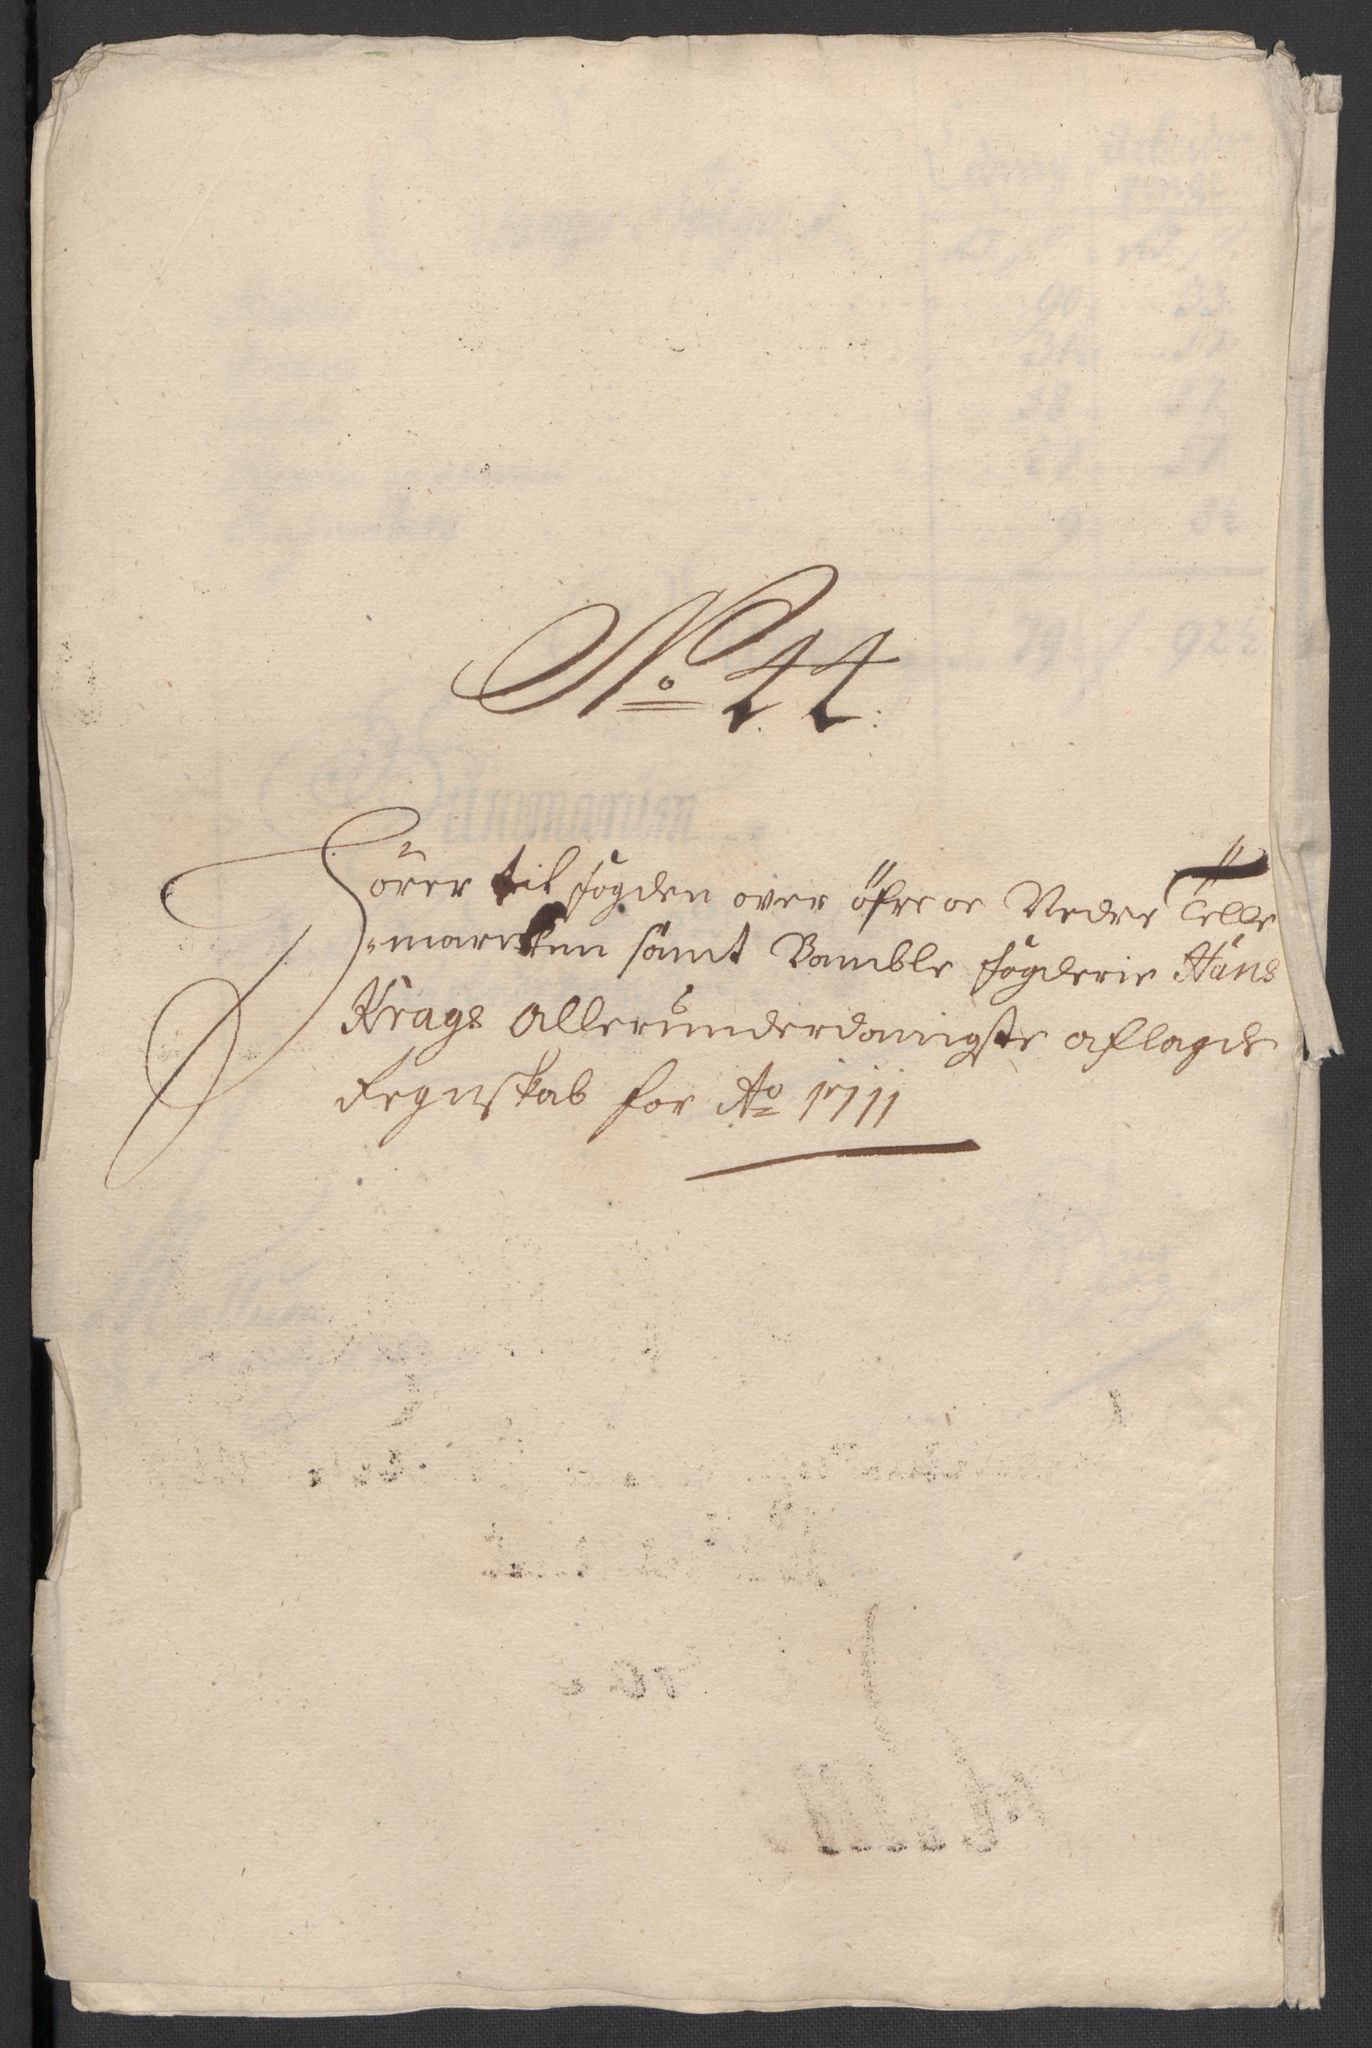 No 44:
Hörer til fogden over öfre oc Nedre Telle
-marcken samt Bamble fogderie Hans
Krags Allerunderdanigste aflagde
Regnskab for Ao 1711